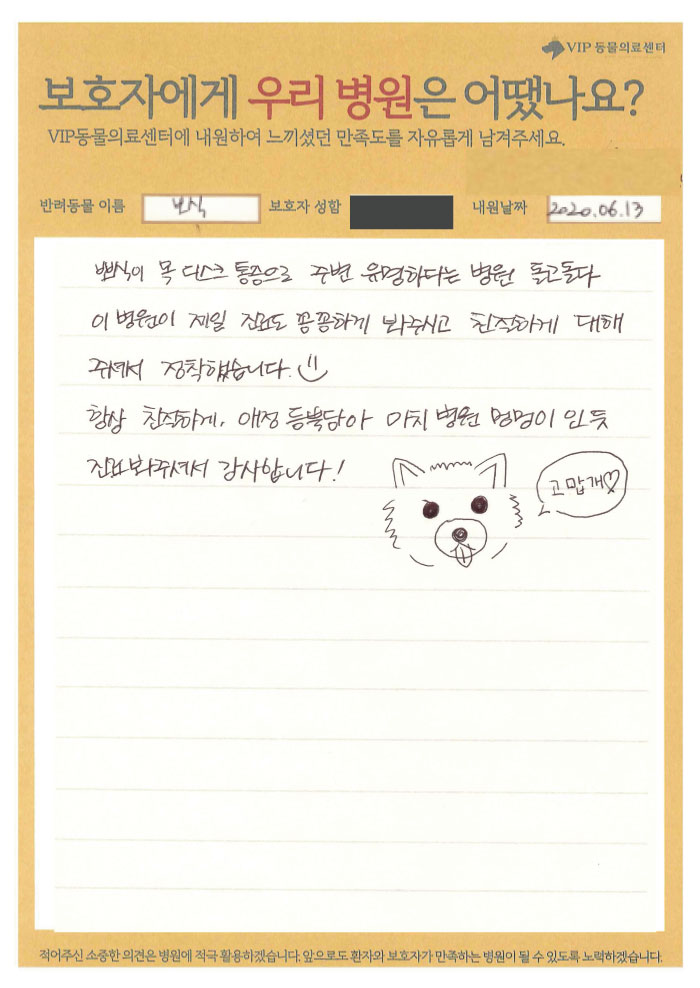 VIP 동물의료센터
보호자에게 우리 병원은 어땠나요?
VIP동물의료센터에 내원하여 느끼셨던 만족도를 자유롭게 남겨주세요.
반려동물 이름 뽀식 보호자 성함 내원날짜 2020.06.13
뽀식이 목 디스크 통증으로 주변 유명하다는 병원 돌고돌다
이 병원이 제일 진료도 꼼꼼하게 봐주시고 친절하게 대해
주셔서 정착했습니다.
항상 친절하게, 애정 듬뿍담아 마치 병원 멍멍이 인 듯
진료봐주셔서 감사합니다!
고맙개♡
적어주신 소중한 의견은 병원에 적극 활용하겠습니다. 앞으로도 환자와 보호자가 만족하는 병원이 될 수 있도록 노력하겠습니다.